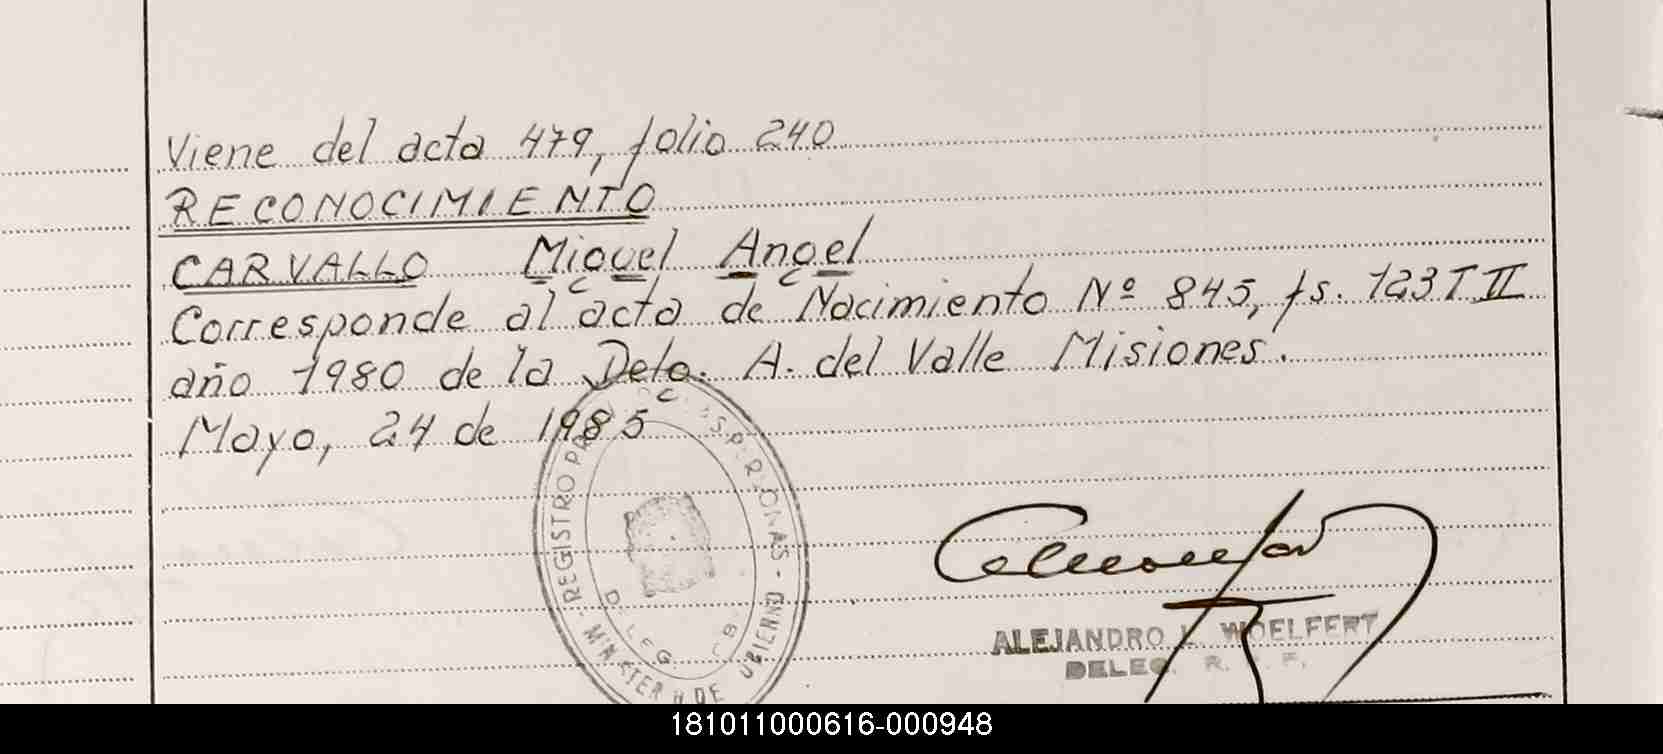 Viene del acta 479, folio 240
RECONOCIMIENTO
CARVALLO Miguel Angel
Corresponde al acta de Nacimiento Nº 845, fs. 123 T II
año 1980 de la Deleg. A. del Valle Misiones.
Mayo, 24 de 1985
REGISTRO PERSONAS
MINISTER DE
ALEJANDRO L. WOELFERT
DELEG. R. P.
181011000616-000948